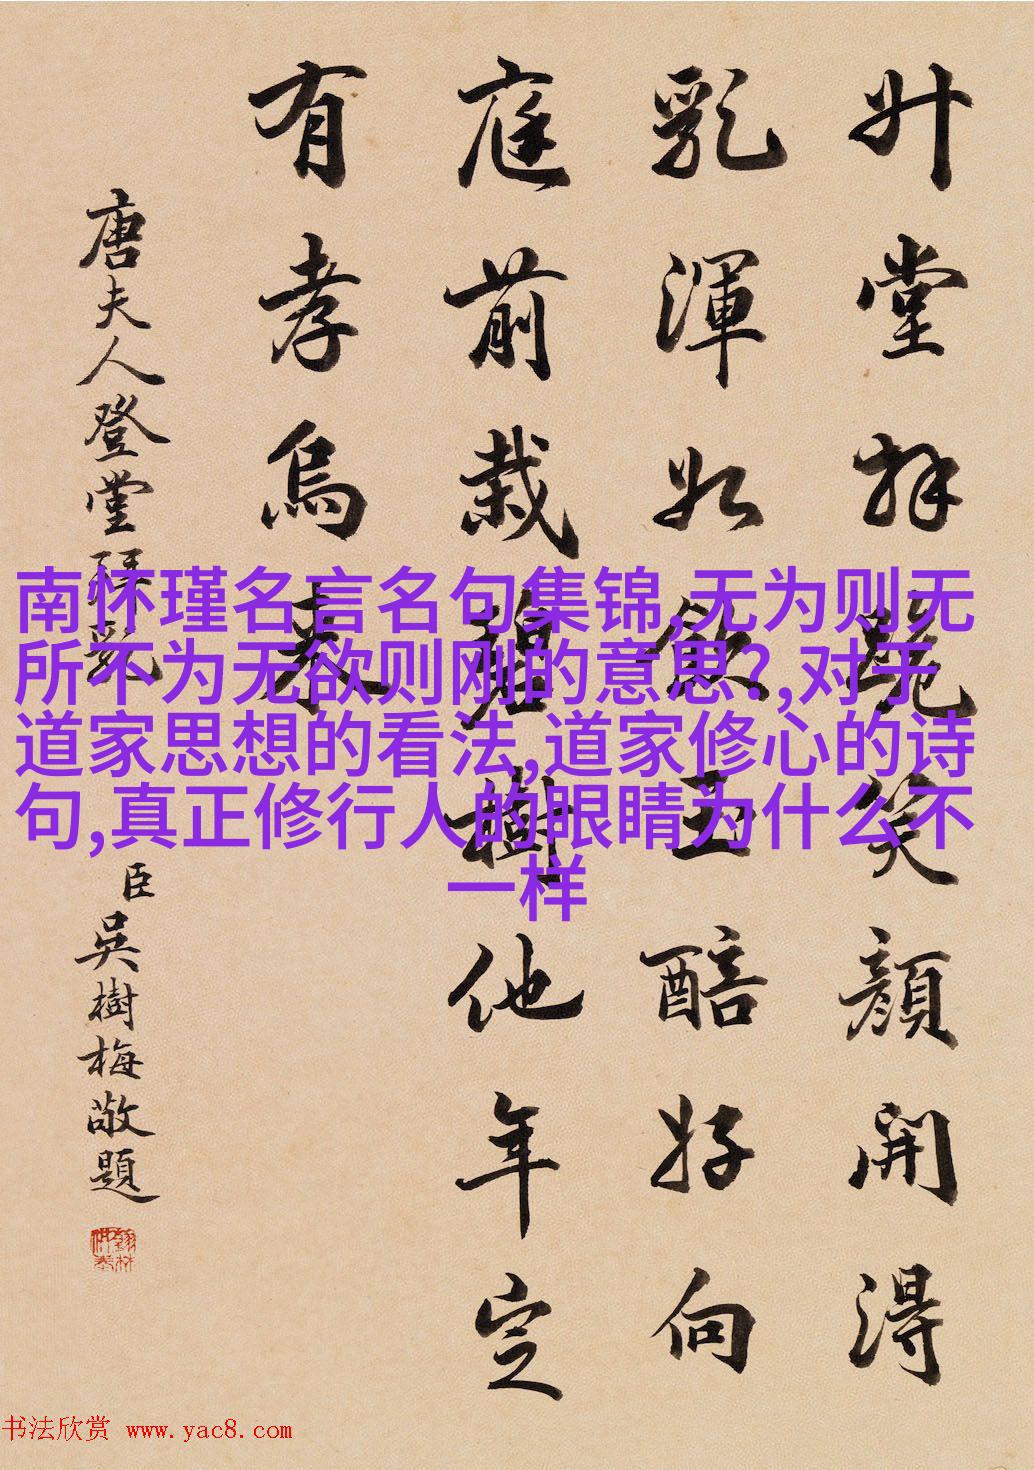 升堂拜跪笑顏開得
乳渾如飲玉醅好向
庭前栽碧樹他年定
有孝烏來
唐夫人登堂
臣吳樹梅敬題
南怀瑾名言名句集锦,无为则无
所不为无欲则刚的意思?,对于
道家思想的看法,道家修心的诗
句,真正修行人的眼睛为什么不
一样
书法欣赏 www.yac8.com